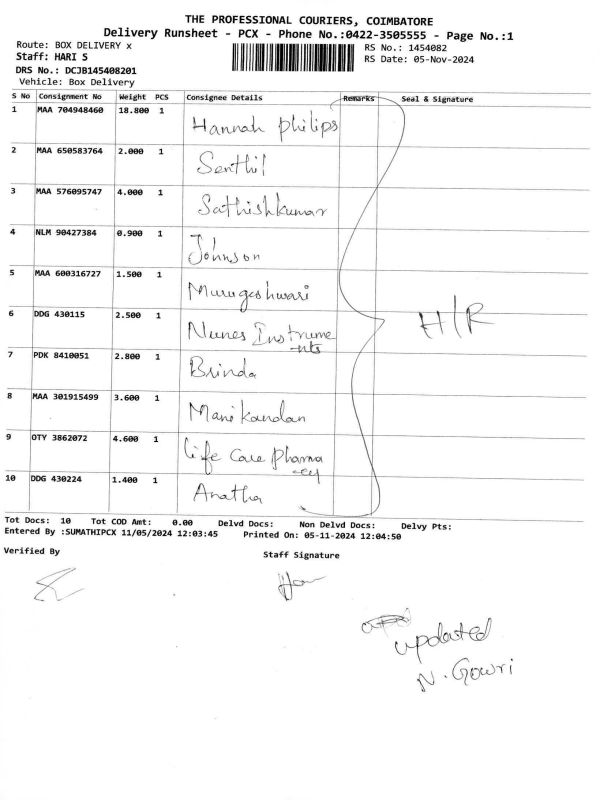 THE PROFESSIONAL COURIERS, COIMBATORE
Delivery Runsheet - PCX - Phone No.:0422-3505555 - Page No.:1
Route: BOX DELIVERY x RS No.: 1454082
Staff: HARI S RS Date: 05-Nov-2024
DRS No.: DCJB145408201
Vehicle: Box Delivery
S No Consignment No Weight PCS Consignee Details Remarks Seal & Signature
1 MAA 704948460 18.800 1 Hannah Philips
2 MAA 650583764 2.000 1 Senthil
3 MAA 576095747 4.000 1 Sathishkumar
4 NLM 90427384 0.900 1 Johnson
5 MAA 600316727 1.500 1 Murugeshwari
6 DDG 430115 2.500 1 Nunes Instrume
-nts
H/R
7 PDK 8410051 2.800 1 Brinda
8 MAA 301915499 3.600 1 Manikandan
9 OTY 3862072 4.600 1 Life Care Pharma
-cy
10 DDG 430224 1.400 1 Anatha
Tot Docs: 10 Tot COD Amt: 0.00 Delvd Docs: Non Delvd Docs: Delvy Pts:
Entered By :SUMATHIPCX 11/05/2024 12:03:45 Printed On: 05-11-2024 12:04:50
Verified By Staff Signature
updated
N. Gowri